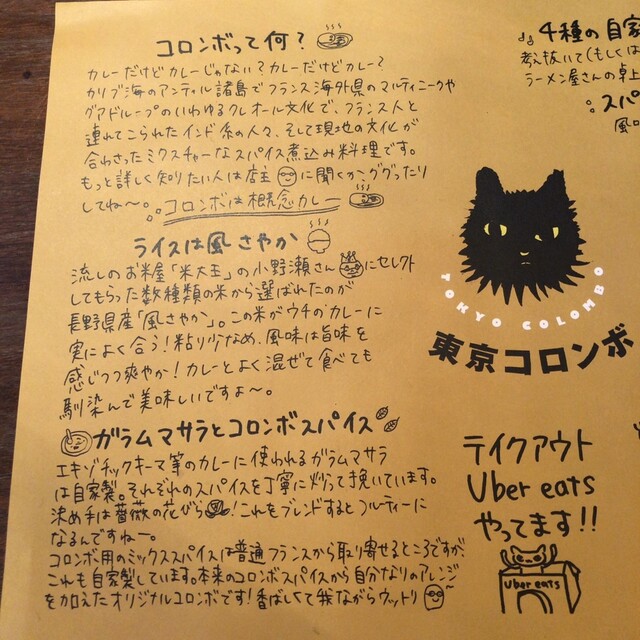 コロンボって何？
カレーだけどカレーじゃない？カレーだけどカレー？
カリブ海のアンティル諸島でフランス海外県のマルティニークや
グアドループのいわゆるクレオール文化で、フランス人と
連れてこられたインド系の人々、そして現地の文化が
合わさったミクスチャーなスパイス煮込み料理です。
もっと詳しく知りたい人は店主に聞くか、ググったり
してね〜。コロンボは概念カレー
ライスは風さやか
流しのお米屋「米大王」の小野瀬さんにセレクト
してもらった数種類の米から選ばれたのが
長野県産「風さやか」。この米がウチのカレーに
実によく合う！粘り少なめ、風味は旨味を
感じつつ爽やか！カレーとよく混ぜて食べても
馴染んで美味しいですよ〜。
ガラムマサラとコロンボスパイス
エキゾチックキーマ等のカレーに使われるガラムマサラ
は自家製。それぞれのスパイスを丁寧に炒って挽いています。
決め手は薔薇の花びら！これもブレンドするとフルーティーに
なるんですね〜。
コロンボ用のミックススパイスは普通フランスから取り寄せるところですが、
これも自家製しています。本来のコロンボスパイスから自分なりのアレンジ
を加えたオリジナルコロンボです！香ばしくて我ながらウットリ〜
4種の自家
考え抜いて(もしくは
ラーメン屋さんの卓上
スパ
風
TOKYO COLOMBO
東京コロンボ
テイクアウト
Uber eats
やってます!!
Uber eats